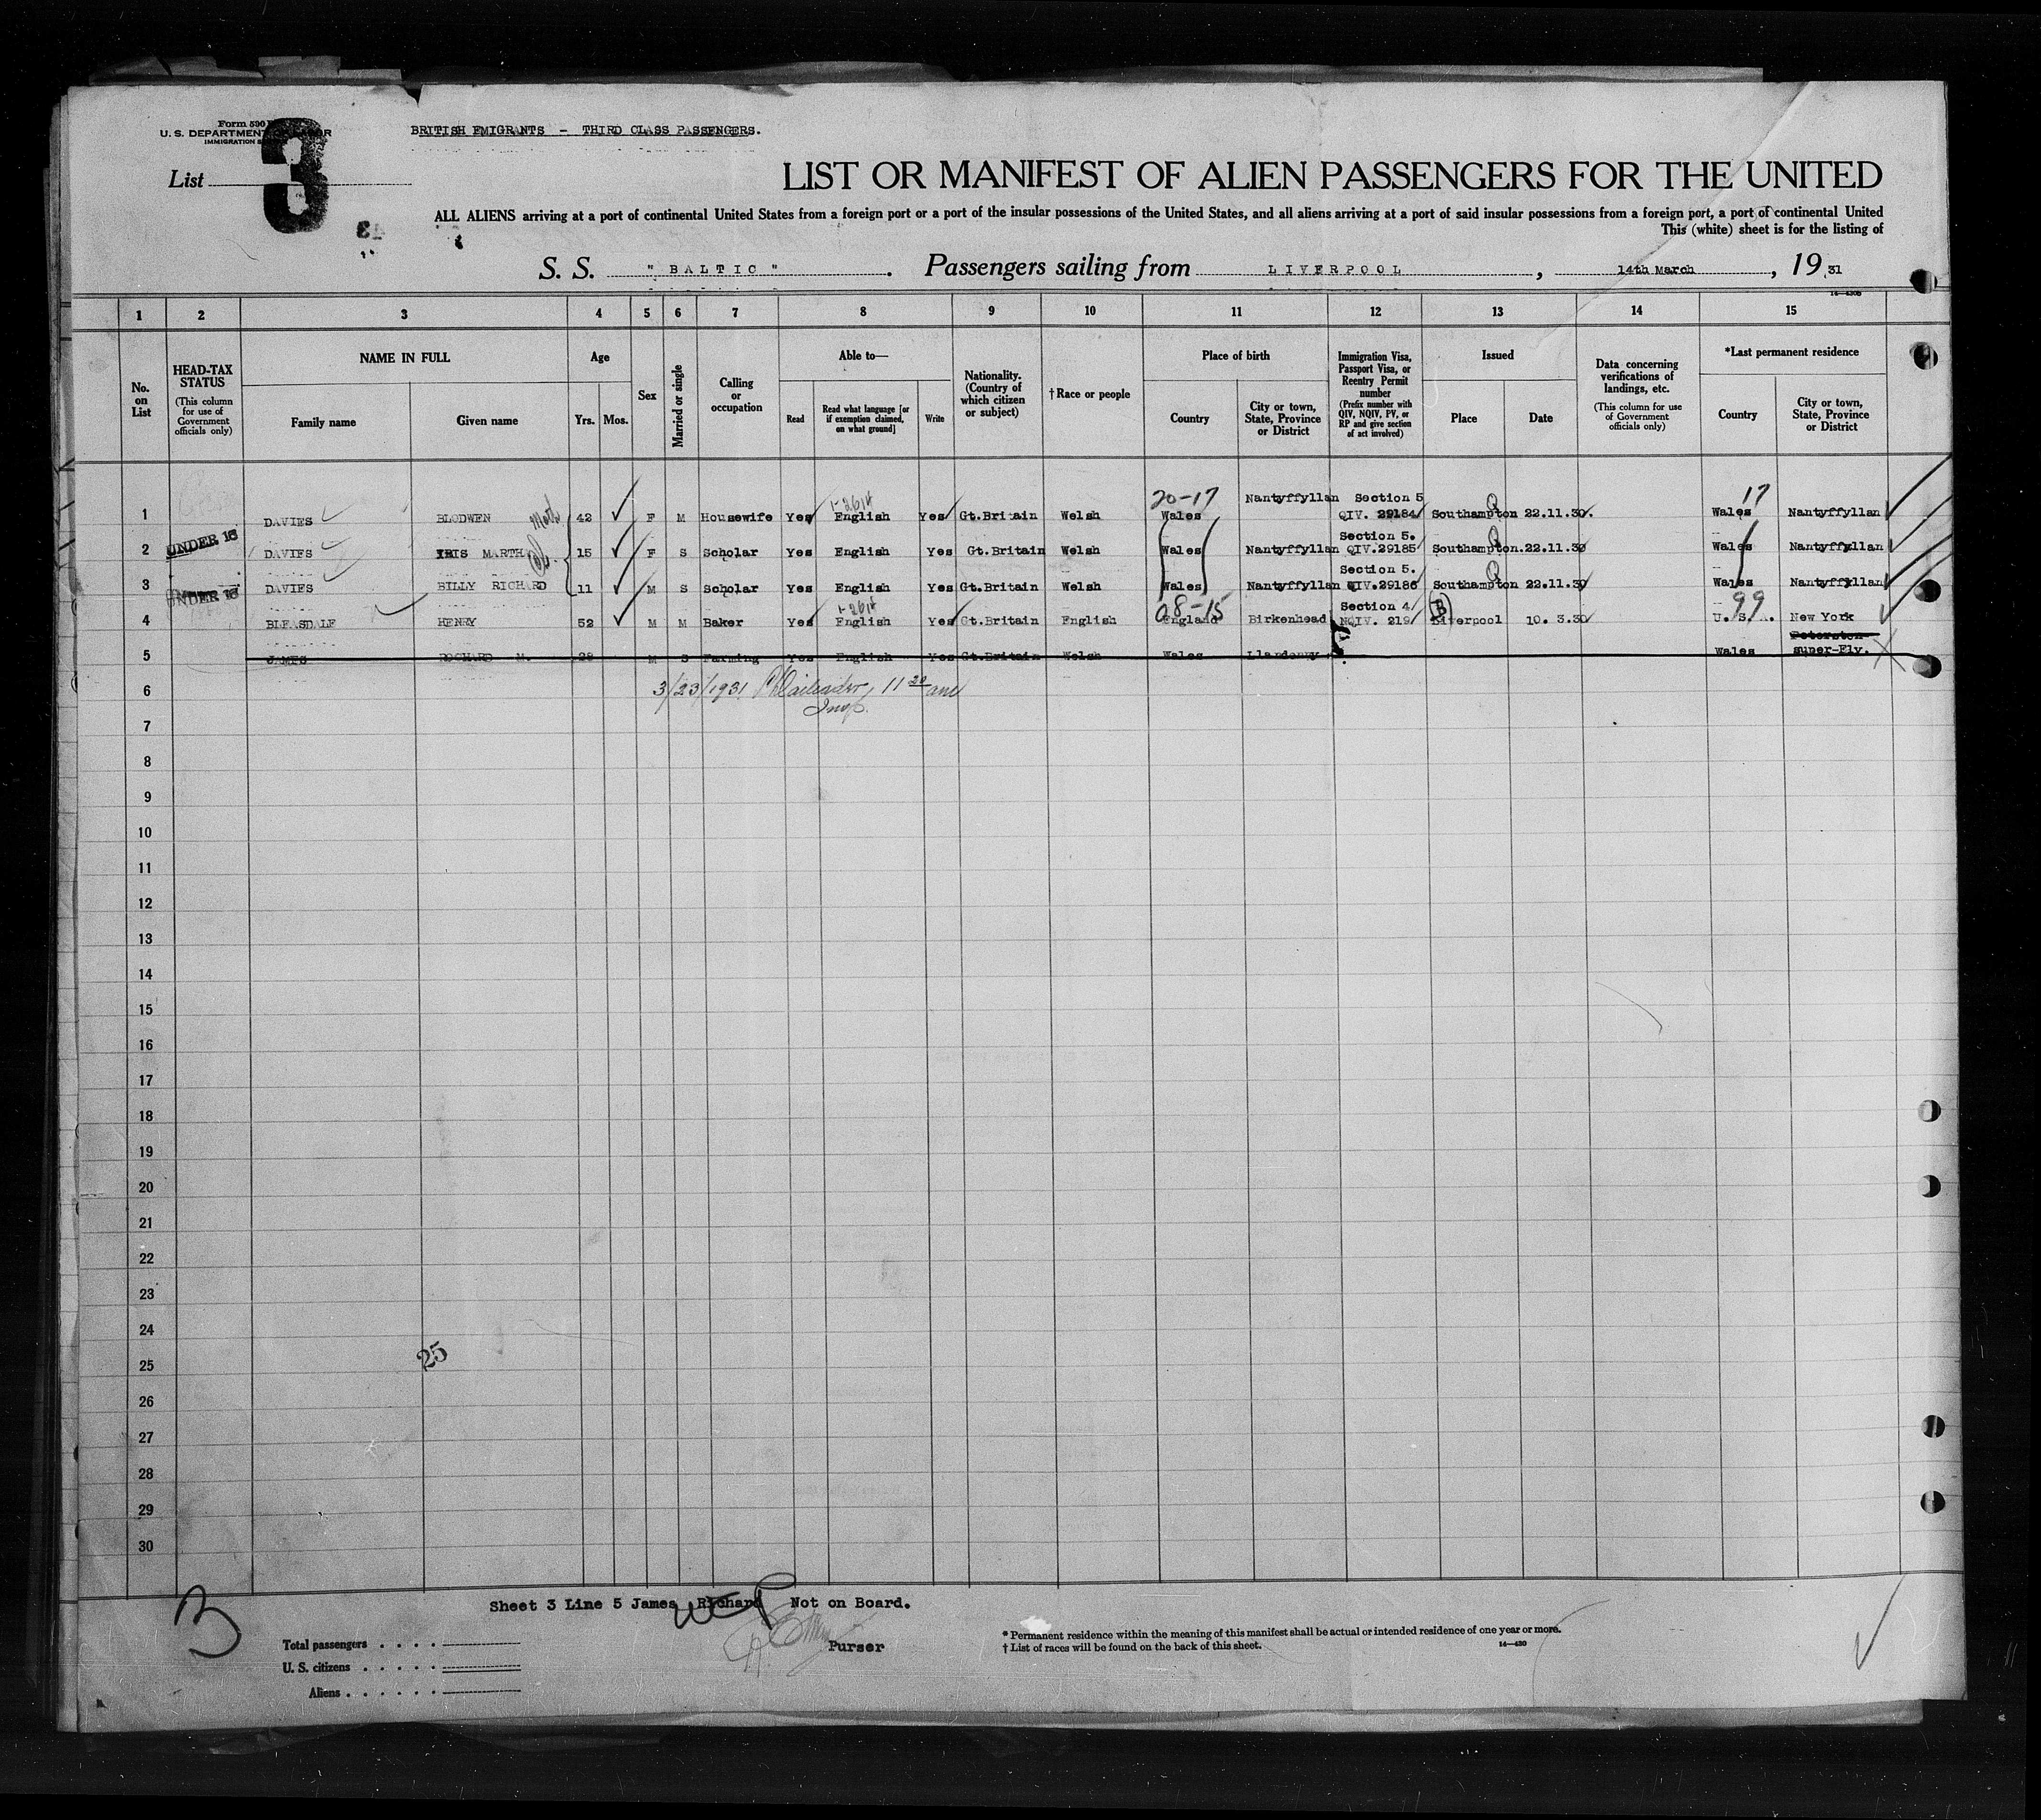 Form 500
U. S. DEPARTMENT OF LABOR
IMMIGRATION
BRITISH EMIGRANTS - THIRD CLASS PASSENGERS.
List 3
LIST OR MANIFEST OF ALIEN PASSENGERS FOR THE UNITED
ALL ALIENS arriving at a port of continental United States from a foreign port or a port of the insular possessions of the United States, and all aliens arriving at a port of said insular possessions from a foreign port, a port of continental United
This (white) sheet is for the listing of
S. S. " BALTIC " . Passengers sailing from LIVERPOOL , 14th March , 19 31
1 2 3 4 5 6 7 8 9 10 11 12 13 14 15
No. on List
HEAD-TAX STATUS (This column for use of Government officials only)
NAME IN FULL
Family name
Given name
Age
Yrs. Mos.
Sex
Married or single
Calling or occupation
Able to—
Read
Read what language [or if exemption claimed, on what ground]
Write
Nationality. (Country of which citizen or subject)
†Race or people
Place of birth
Country
City or town, State, Province or District
Immigration Visa, Passport Visa, or Reentry Permit number (Prefix number with QIV, NQIV, PV, or RP and give section of act involved)
Issued
Place
Date
Data concerning verifications of landings, etc. (This column for use of Government officials only)
*Last permanent residence
Country
City or town, State, Province or District
20-17 Section 5 Q 17
1 DAVIES BLODWEN 42 F M Housewife Yes English Yes Gt.Britain Welsh Wales Nantyffyllan QIV. 29184 Southampton 22.11.30. Wales Nantyffyllan
Section 5. Q
2 UNDER 16 DAVIES IRIS MARTHA 15 F S Scholar Yes English Yes Gt.Britain Welsh Wales Nantyffyllan QIV.29185 Southampton. 22.11.30 Wales Nantyffyllan
Section 5. Q
3 UNDER 16 DAVIES BILLY RICHARD 11 M S Scholar Yes English Yes Gt.Britain Welsh Wales Nantyffyllan QIV.29186 Southampton 22.11.30 Wales Nantyffyllan
08-15 Section 4 B 99
4 BLEASDALE HENRY 52 M M Baker Yes English Yes Gt.Britain English England Birkenhead NQIV. 219 Liverpool 10. 3.30 U. S. A. New York
Peterston
5 JAMES RICHARD M. 28 M S Farming Yes English Yes Gt.Britain Welsh Wales Wales super-Ely.
6 3/23/1931 11 20 am
Insp.
7
8
9
10
11
12
13
14
15
16
17
18
19
20
21
22
23
24
25 25
26
27
28
29
30
Sheet 3 Line 5 James Richard Not on Board.
Purser
Total passengers
U. S. citizens
Aliens
* Permanent residence within the meaning of this manifest shall be actual or intended residence of one year or more.
† List of races will be found on the back of this sheet.
14—430